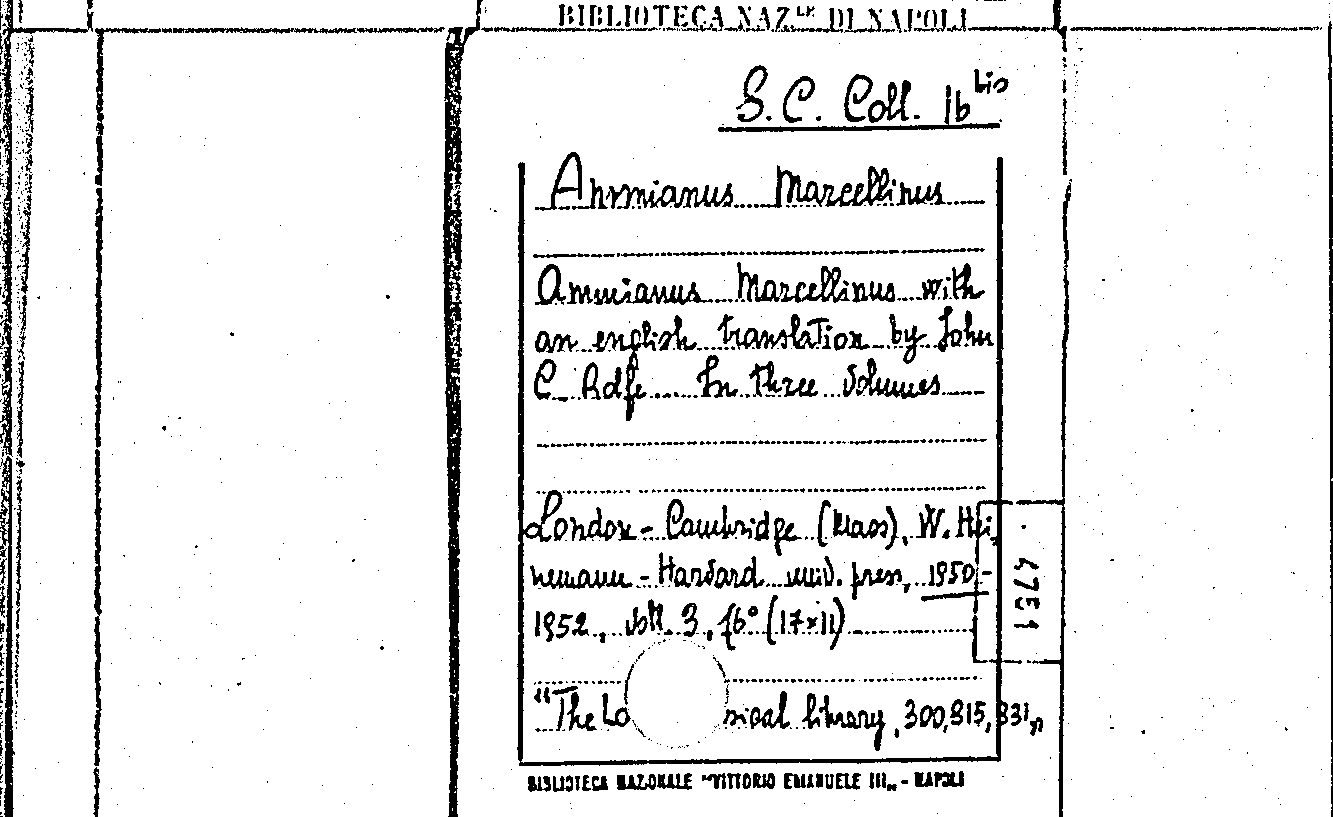 BIBLIOTECA NAZ.LE DI NAPOLI
S.C. Coll. 16 bis
Ammianus Marcellinus
Ammianus Marcellinus with
an english translation by John
C. Rolfe... In three volumes
London - Cambridge (Mass), W. Hei
nemann - Harvard univ. press, 1950-
1952, voll. 3, 16° (17x11)
"The Lo sical library, 300,315,331„
4751
BIBLIOTECA NAZIONALE "VITTORIO EMANUELE III„ - NAPOLI